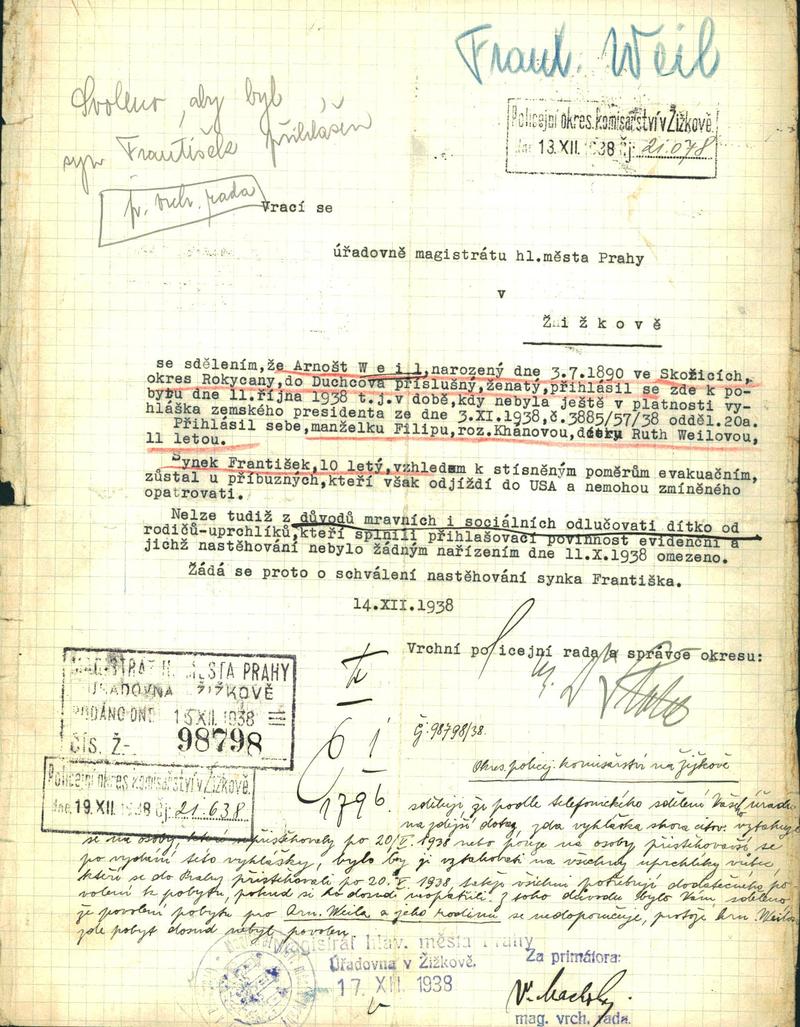 Frant. Weil
Svoleno, aby byl
syn František přihlášen
p. vrch. rada
Policejní okres. komisařství v Žižkově.
dne 13.XII.1938 Čj. 21.078
Vrací se
úřadovně magistrátu hl.města Prahy
v
Žižkově
se sdělením,že Arnošt W e i l,narozený dne 3.7.1890 ve Skořicích,
okres Rokycany,do Duchcova příslušný,ženatý,přihlásil se zde k po-
bytu dne 11.října 1938 t.j.v době,kdy nebyla ještě v platnosti vy-
hláška zemského presidenta ze dne 3.XI.1938,č.3885/57/38 odděl.20a.
Přihlásil sebe,manželku Filipu,roz.Khánovou,dcéru Ruth Weilovou,
11 letou.
Synek František,10 letý,vzhledem k stísněným poměrům evakuačním,
zůstal u příbuzných,kteří však odjíždí do USA a nemohou zmíněného
opatrovati.
Nelze tudiž z důvodů mravních i sociálních odlučovati dítko od
rodičů-uprchlíků,kteří splnili přihlašovací povinnost evidenční a
jichž nastěhování nebylo žádným nařízením dne 11.X.1938 omezeno.
Žádá se proto o schválení nastěhování synka Františka.
14.XII.1938
Vrchní policejní rada a správce okresu:
MAGISTRÁT H. MĚSTA PRAHY
ÚŘADOVNA V ŽIŽKOVĚ
PODÁNO DNE 15.XII.1938
ČÍS. Ž-. 98798
Policejní okres. komisařství v Žižkově.
dne 19.XII.1938 Čj. 21.638
6 1
1796
Č: 98798/38.
Okres. policej. komisařství na Žižkově
sděluji že podle telefonického sdělení Vašeho úřadu
na zdejší dotaz, zda vyhláška shora citov. vztahuje
se na osoby, které se přistěhovaly po 20/V. 1938 nebo pouze na osoby přistěhovavší se
po vydání této vyhlášky, bylo by ji vztahovati na všechny uprchlíky vůbec,
kteří se do Prahy přistěhovali po 20. V. 1938, takže všichni potřebují dodatečného po-
volení k pobytu, pokud si ho dosud neopatřili. Z toho důvodu bylo Vám sděleno
že povolení pobytu pro Arn. Weila a jeho rodinu se nedoporučuje, protože Arn. Weilovi
zde pobyt dosud nebyl povolen.
Magistrát hlav. města Prahy
Úřadovna v Žižkově.
17 XII. 1938
Za primátora:
mag. vrch. rada.